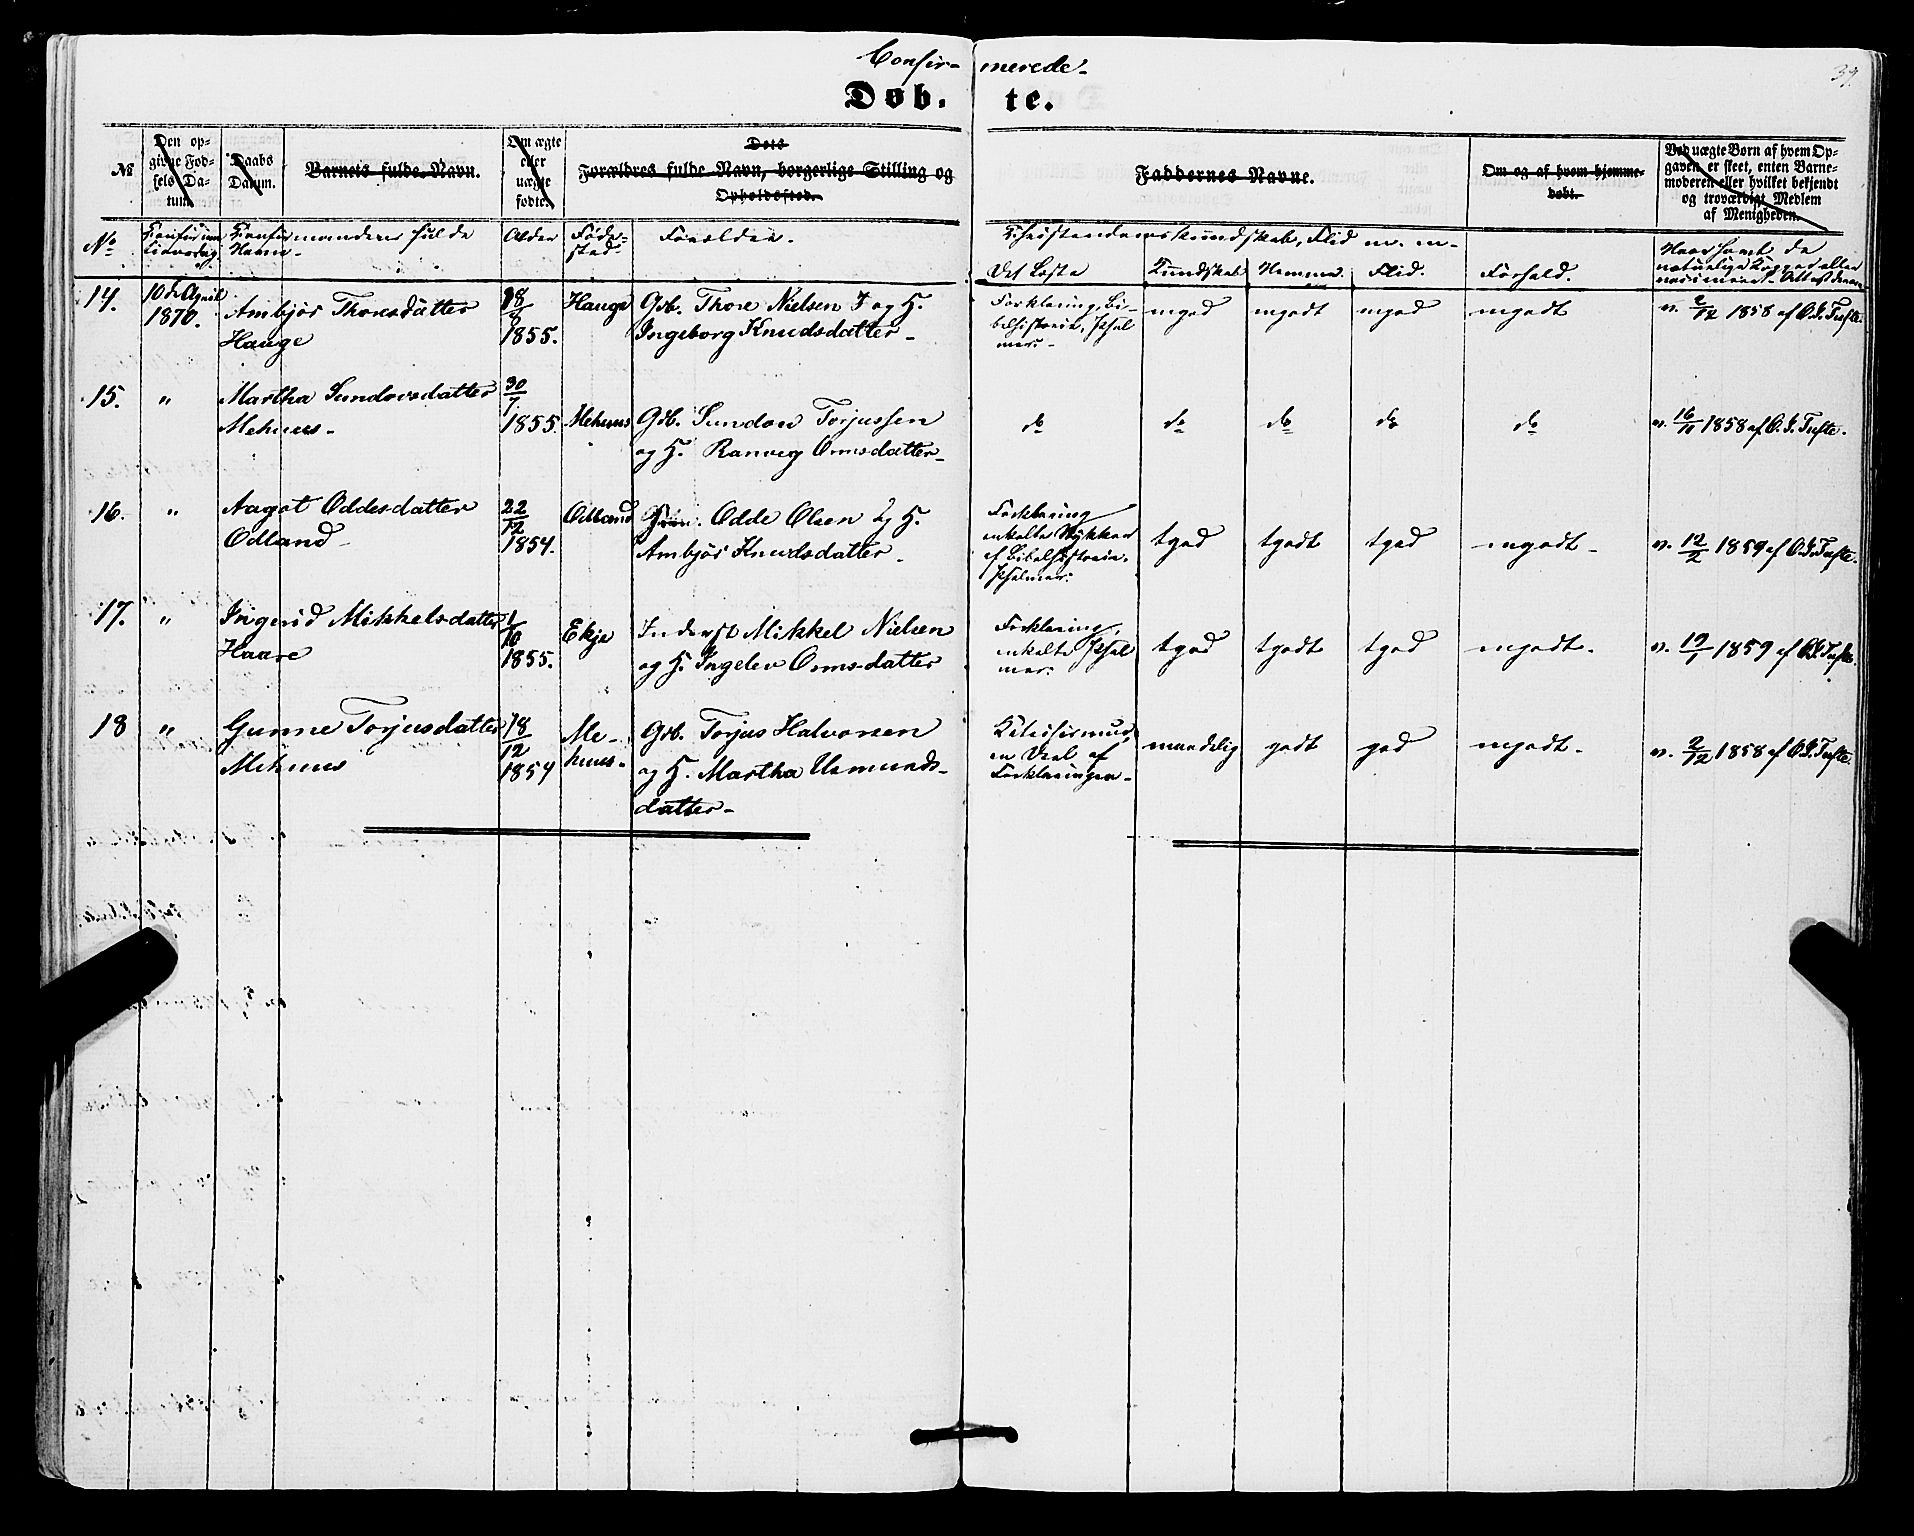 Confir- merede-
39.
Døb. te.
№
Den op-
givne Fød-
sels Da-
tum.
Daabs
Datum.
Barnets fulde Navn.
Om ægte
eller
uægte
fødte.
Dets
Forældres fulde Navn, borgerlige Stilling og
Opholdssted.
Faddernes Navne.
Om og af hvem hjemme-
døbt.
Ved uægte Børn af hvem Op-
gaven er skeet, enten Barne-
moderen eller hvilket bekjendt
og troværdigt Medlem
af Menigheden.
No
Confirmandens fulde
Navn-
Alder
Føde-
sted-
Forældre.
Christendomskundskab, Flid m. m-
Det Læste
Kundskab
Nemme
Flid.
Forhold.
Naar havt de
naturlige Kopper eller
14. 10de April
1870.
Ambjør Thoresdatter
Hauge
18/8
1855.
Hauge
Gdb. Thore Nielsen I og H.
Ingeborg Knudsdatter-
Forklaring, Bi-
belhistorie, Psal
mer.-
mgod mgodt mgod mgodt
v. 2/12 1858 af O. I. Tufte.
15. "
Martha Sundovsdatter
Mehuus-
30/7
1855.
Mehuus
Gdb. Sundov Torjussen
og H. Ranveg Ormsdatter-
do do do do do
v. 16/11 1858 af O. I. Tufte.
16. "
Aagot Oddesdatter
Odland-
22/12
1854.
Odland
Odde Olsen og H.
Ambjør Knudsdatter-
Forklaring
enkelte Stykker
af Bibelhistorie.
Psalmer.
tgod tgodt tgod mgodt-
v. 12/2 1859 af O. I. Tufte.
17. "
Ingerid Mikkelsdatter
Haave
1/10
1855.
Ekje
Inderst Mikkel Nielsen
og H. Ingelev Ormsdatter
Forklaring,
enkelte Psal
mer.
tgod tgodt tgod mgodt-
v. 12/1 1859 af O. I. Tufte.
18 "
Gunne Torjusdatter
Mehuus
18/12
1854
Me-
huus-
Gdb. Torjus Halvorsen
og H. Martha Usmunds-
datter-
en Deel af
Forklaringen-
maadelig godt god mgodt-
v. 2/12 1858 af O. I. Tufte.